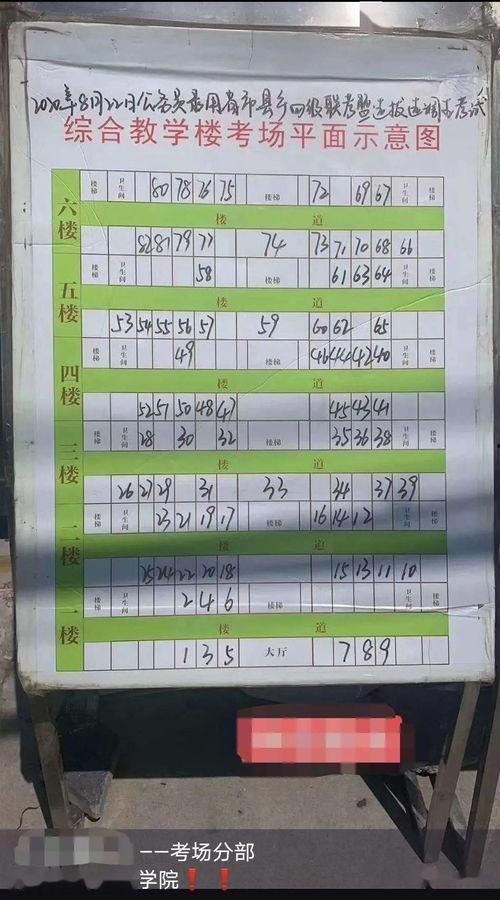 2020年8月22日公务员录用省市县乡四级联考暨选拔选调生考试
综合教学楼考场平面示意图
楼梯 卫生间 80 78 76 75 楼梯 72 69 67 卫生间 楼梯
六楼 楼道
82 81 79 77 74 73 71 70 68 66
楼梯 卫生间 58 61 63 64 卫生间 楼梯
五楼 楼道
53 54 55 56 57 59 60 62 65
楼梯 卫生间 49 楼梯 46 44 42 40 卫生间 楼梯
四楼 楼道
52 51 50 48 47 45 43 41
楼梯 卫生间 28 30 32 楼梯 35 36 38 卫生间 楼梯
三楼 楼道
26 27 29 31 33 34 37 39
楼梯 卫生间 23 21 19 17 楼梯 16 14 12 卫生间 楼梯
二楼 楼道
25 24 22 20 18 15 13 11 10
楼梯 卫生间 2 4 6 楼梯 卫生间 楼梯
一楼 楼道
1 3 5 大厅 7 8 9
--考场分部
学院❗❗